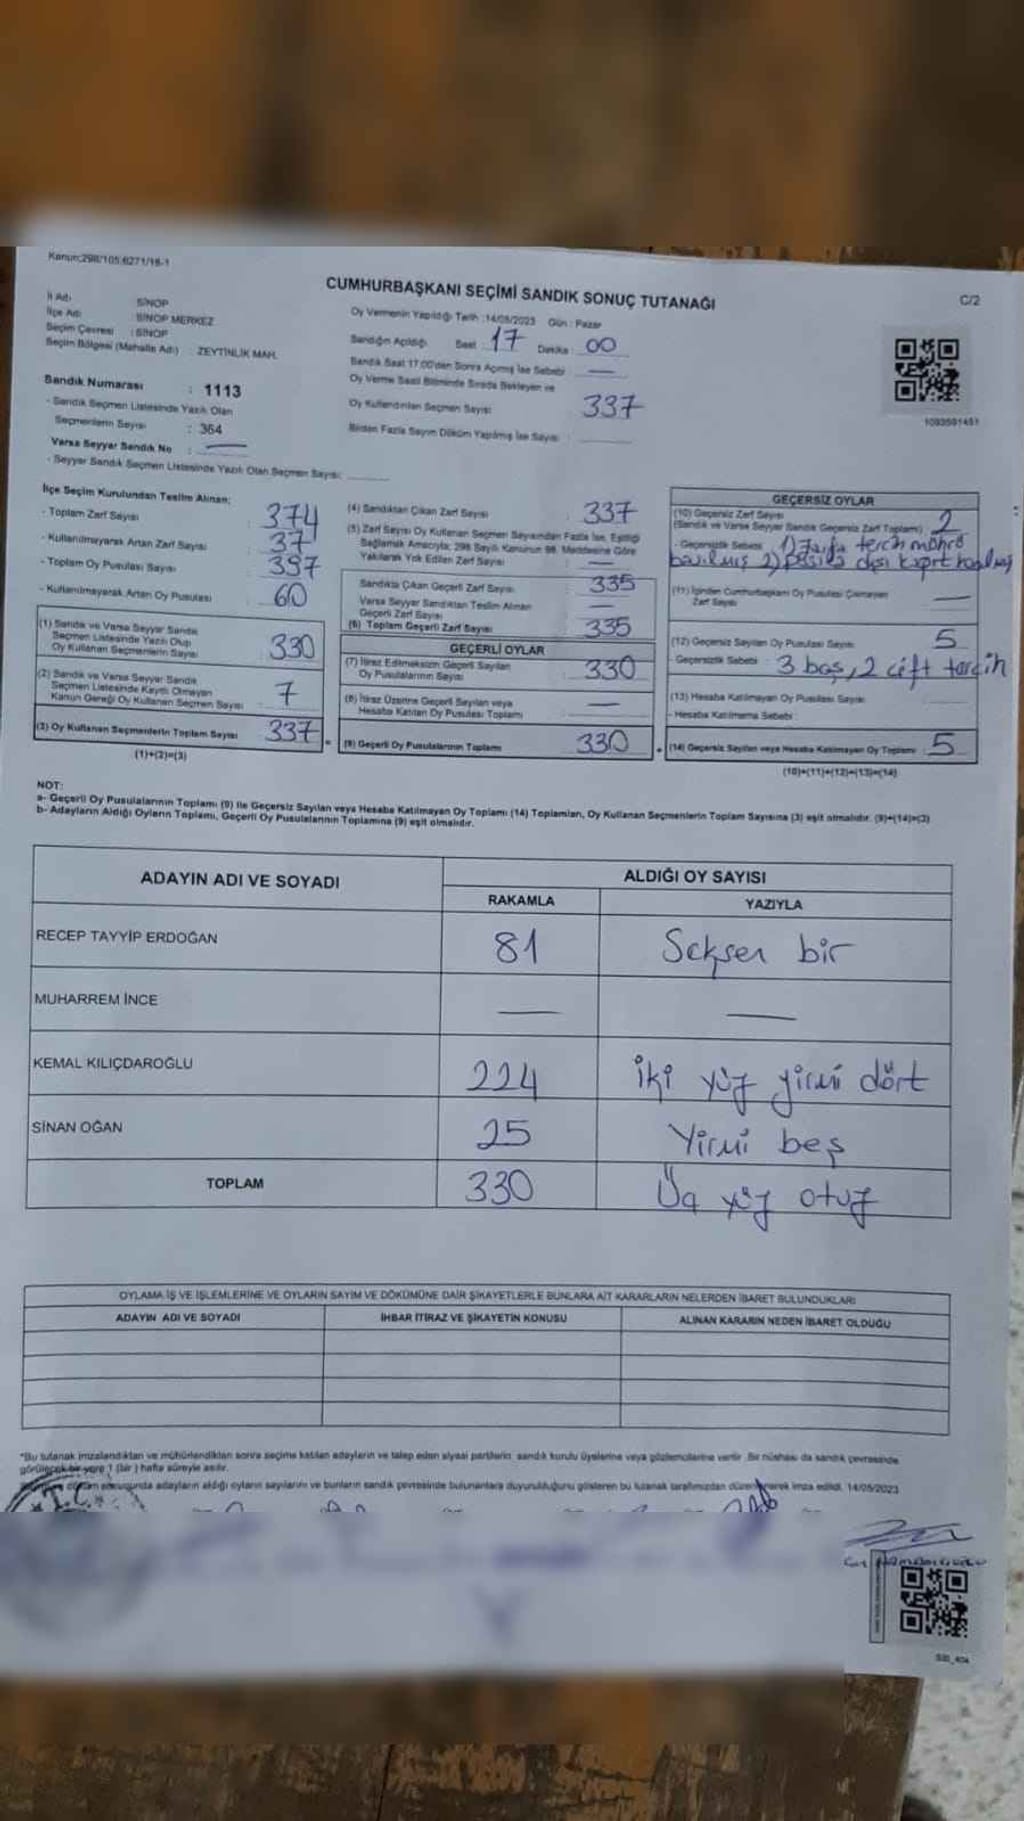 Kanun:298/105,6271/16-1
CUMHURBAŞKANI SEÇİMİ SANDIK SONUÇ TUTANAĞI
C/2
İl Adı : SİNOP
İlçe Adı : SİNOP MERKEZ
Seçim Çevresi : SİNOP
Seçim Bölgesi (Mahalle Adı) : ZEYTİNLİK MAH.
Sandık Numarası : 1113
- Sandık Seçmen Listesinde Yazılı Olan
Seçmenlerin Sayısı : 364
Varsa Seyyar Sandık No : —
- Seyyar Sandık Seçmen Listesinde Yazılı Olan Seçmen Sayısı:
Oy Vermenin Yapıldığı Tarih :14/05/2023 Gün : Pazar
Sandığın Açıldığı Saat : 17 Dakika : 00
Sandık Saat 17:00'den Sonra Açılmış İse Sebebi : —
Oy Verme Saati Bitiminde Sırada Bekleyen ve
Oy Kullandırılan Seçmen Sayısı : 337
Birden Fazla Sayım Döküm Yapılmış İse Sayısı :
1093591451
İlçe Seçim Kurulundan Teslim Alınan;
- Toplam Zarf Sayısı : 374
- Kullanılmayarak Artan Zarf Sayısı : 37
- Toplam Oy Pusulası Sayısı : 397
- Kullanılmayarak Artan Oy Pusulası : 60
(1) Sandık ve Varsa Seyyar Sandık
Seçmen Listesinde Yazılı Olup
Oy Kullanan Seçmenlerin Sayısı : 330
(2) Sandık ve Varsa Seyyar Sandık
Seçmen Listesinde Kayıtlı Olmayan
Kanun Gereği Oy Kullanan Seçmen Sayısı : 7
(3) Oy Kullanan Seçmenlerin Toplam Sayısı : 337
(1)+(2)=(3)
(4) Sandıktan Çıkan Zarf Sayısı : 337
(5) Zarf Sayısı Oy Kullanan Seçmen Sayısından Fazla İse, Eşitliği
Sağlamak Amacıyla; 298 Sayılı Kanunun 98. Maddesine Göre
Yakılarak Yok Edilen Zarf Sayısı : —
Sandıkta Çıkan Geçerli Zarf Sayısı : 335
Varsa Seyyar Sandıktan Teslim Alınan
Geçerli Zarf Sayısı : —
(6) Toplam Geçerli Zarf Sayısı : 335
GEÇERLİ OYLAR
(7) İtiraz Edilmeksizin Geçerli Sayılan
Oy Pusulalarının Sayısı : 330
(8) İtiraz Üzerine Geçerli Sayılan veya
Hesaba Katılan Oy Pusulası Toplamı : —
(9) Geçerli Oy Pusulalarının Toplamı : 330
GEÇERSİZ OYLAR
(10) Geçersiz Zarf Sayısı
(Sandık ve Varsa Seyyar Sandık Geçersiz Zarf Toplamı) : 2
- Geçersizlik Sebebi : 1) Zarfa tercih mührü
basılmış 2) pusula dışı kağıt
(11) İçinden Cumhurbaşkanı Oy Pusulası Çıkmayan
Zarf Sayısı : —
(12) Geçersiz Sayılan Oy Pusulası Sayısı : 5
- Geçersizlik Sebebi : 3 boş, 2 çift tercih
(13) Hesaba Katılmayan Oy Pusulası Sayısı :
- Hesaba Katılmama Sebebi :
(14) Geçersiz Sayılan veya Hesaba Katılmayan Oy Toplamı : 5
(10)+(11)+(12)+(13)=(14)
NOT:
a- Geçerli Oy Pusulalarının Toplamı (9) ile Geçersiz Sayılan veya Hesaba Katılmayan Oy Toplamı (14) Toplamları, Oy Kullanan Seçmenlerin Toplam Sayısına (3) eşit olmalıdır. (9)+(14)=(3)
b- Adayların Aldığı Oyların Toplamı, Geçerli Oy Pusulalarının Toplamına (9) eşit olmalıdır.
ADAYIN ADI VE SOYADI
ALDIĞI OY SAYISI
RAKAMLA YAZIYLA
RECEP TAYYİP ERDOĞAN 81 Seksen bir
MUHARREM İNCE — —
KEMAL KILIÇDAROĞLU 224 iki yüz yirmi dört
SİNAN OĞAN 25 Yirmi beş
TOPLAM 330 Üç yüz otuz
OYLAMA İŞ VE İŞLEMLERİNE VE OYLARIN SAYIM VE DÖKÜMÜNE DAİR ŞİKAYETLERLE BUNLARA AİT KARARLARIN NELERDEN İBARET BULUNDUKLARI
ADAYIN ADI VE SOYADI İHBAR İTİRAZ VE ŞİKAYETİN KONUSU ALINAN KARARIN NEDEN İBARET OLDUĞU
*Bu tutanak imzalandıktan ve mühürlendikten sonra seçime katılan adayların ve talep eden siyasi partilerin sandık kurulu üyelerine veya gözlemcilerine verilir. Bir nüshası da sandık çevresinde
görülecek bir yere 1 (bir) hafta süreyle asılır.
adayların aldığı oyların sayılarını ve bunların sandık çevresinde bulunanlara duyurulduğunu gösteren bu tutanak tarafımızdan imza edildi. 14/05/2023
T.C.